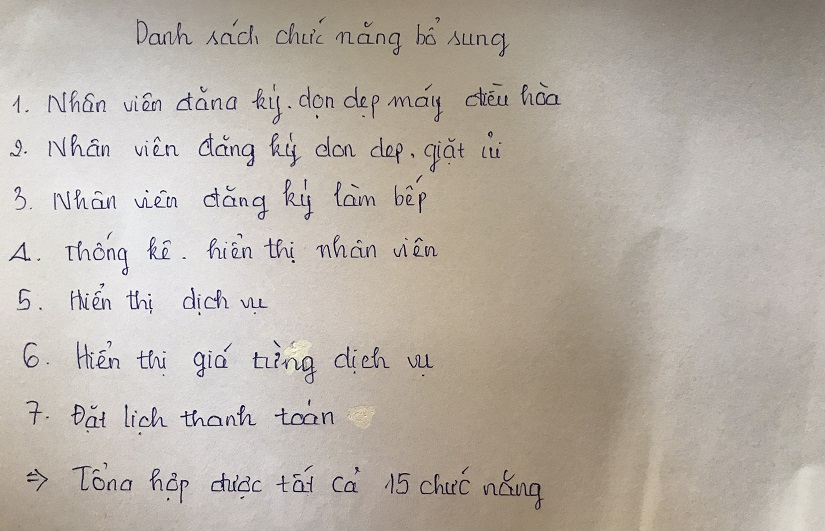 Danh sách chức năng bổ sung
1. Nhân viên đăng ký. dọn dẹp máy điều hòa
2. Nhân viên đăng ký dọn dẹp, giặt ủi
3. Nhân viên đăng ký làm bếp
4. Thống kê. hiển thị nhân viên
5. Hiển thị dịch vụ
6. Hiển thị giá từng dịch vụ
7. Đặt lịch thanh toán
⇒ Tổng hợp được tất cả 15 chức năng